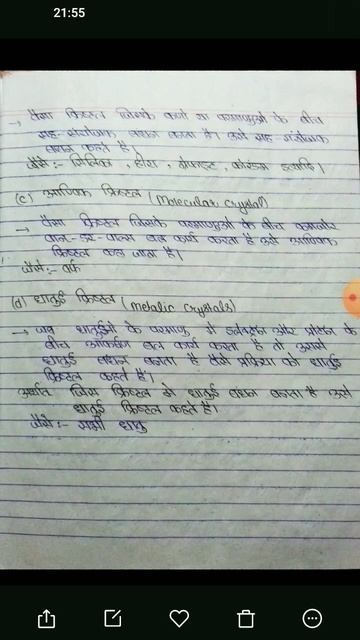 21:55
→ ऐसा क्रिस्टल जिसके कणों या परमाणुओं के बीच
सह-संयोजक बंधन बनता है। उसे सह-संयोजक
बंधन कहते है।
जैसे:- सिलिका, हीरा, ग्रेफाइट, इत्यादि।
(c) आण्विक क्रिस्टल (Molecular crystal)
→ वैसा क्रिस्टल जिसके परमाणुओं के बीच कमजोर
वान-डर-वाल्स बल कार्य करता है उसे आण्विक
क्रिस्टल कहा जाता है।
जैसे:- बर्फ
(d) धातुई क्रिस्टल (metalic crystals)
→ जब धातुओं के परमाणु में इलेक्ट्रान और प्रोटान के
बीच आकर्षण बल कार्य करता है तो उसमें
धातुई बंधन बनता है वैसे प्रक्रिया को धातुई
क्रिस्टल कहते हैं।
अर्थात जिस क्रिस्टल में धातुई बंधन बनता है उसे
धातुई क्रिस्टल कहते हैं।
जैसे:- सभी धातु